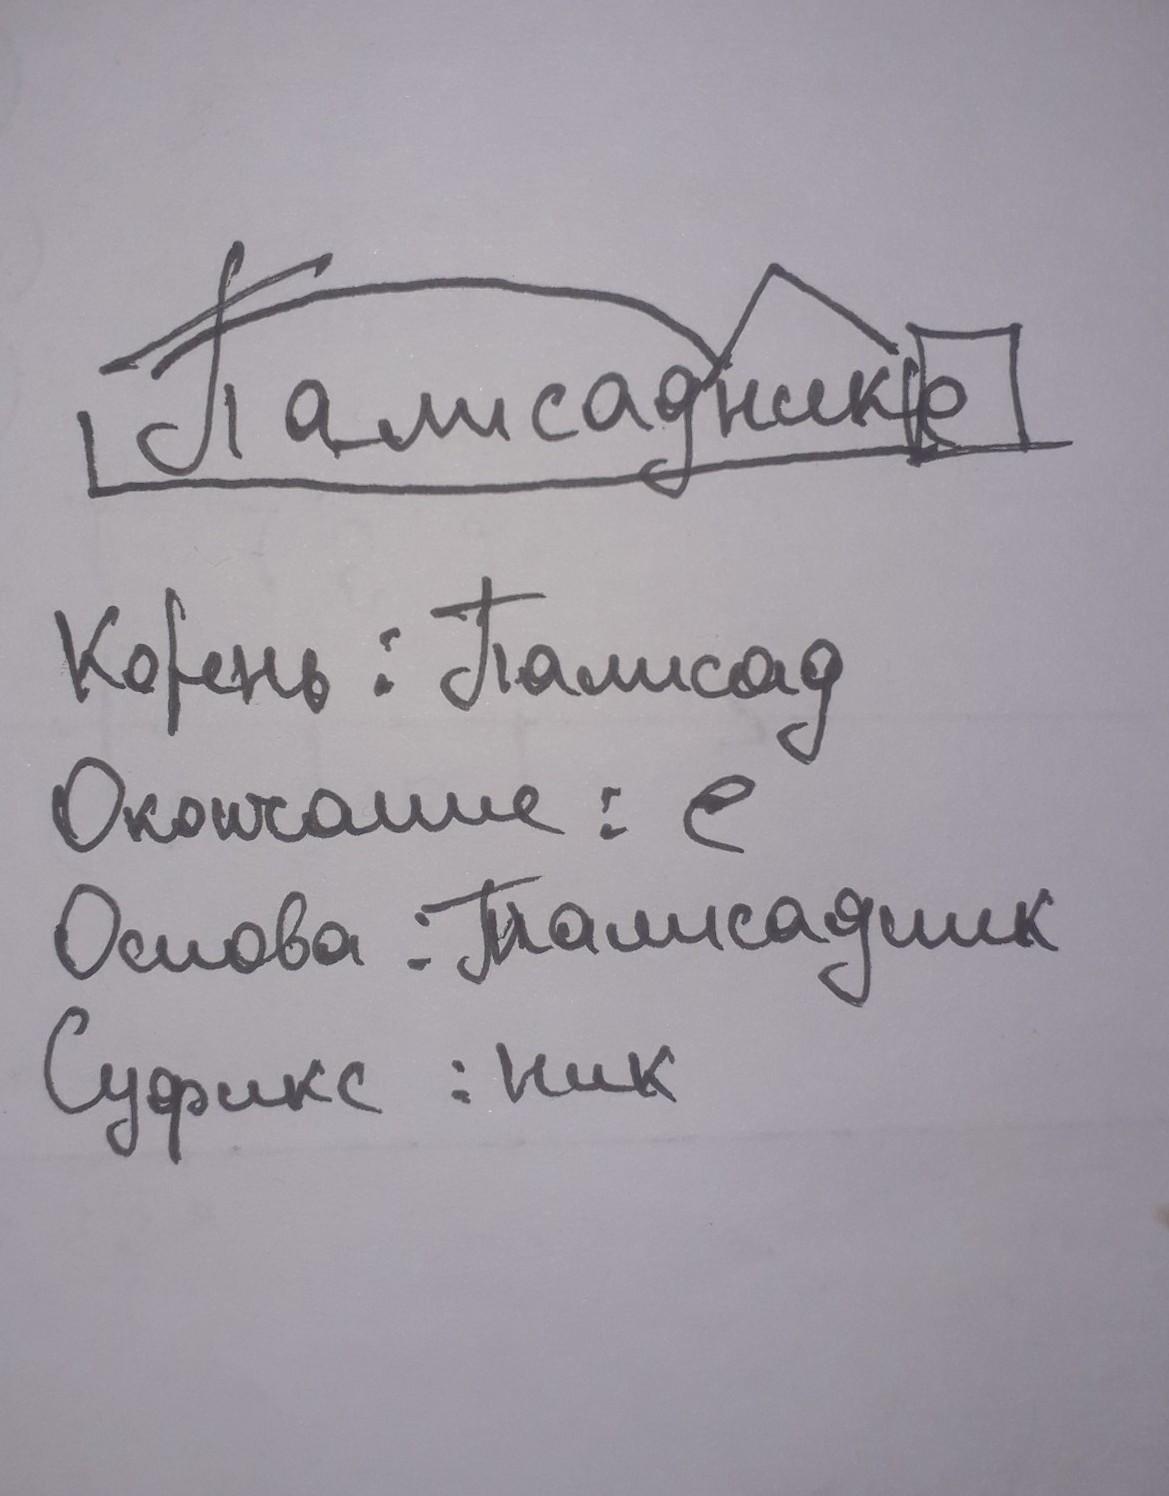 Палисаднике
Корень: Палисад
Окончание: е
Основа: Палисадник
Суфикс: ник